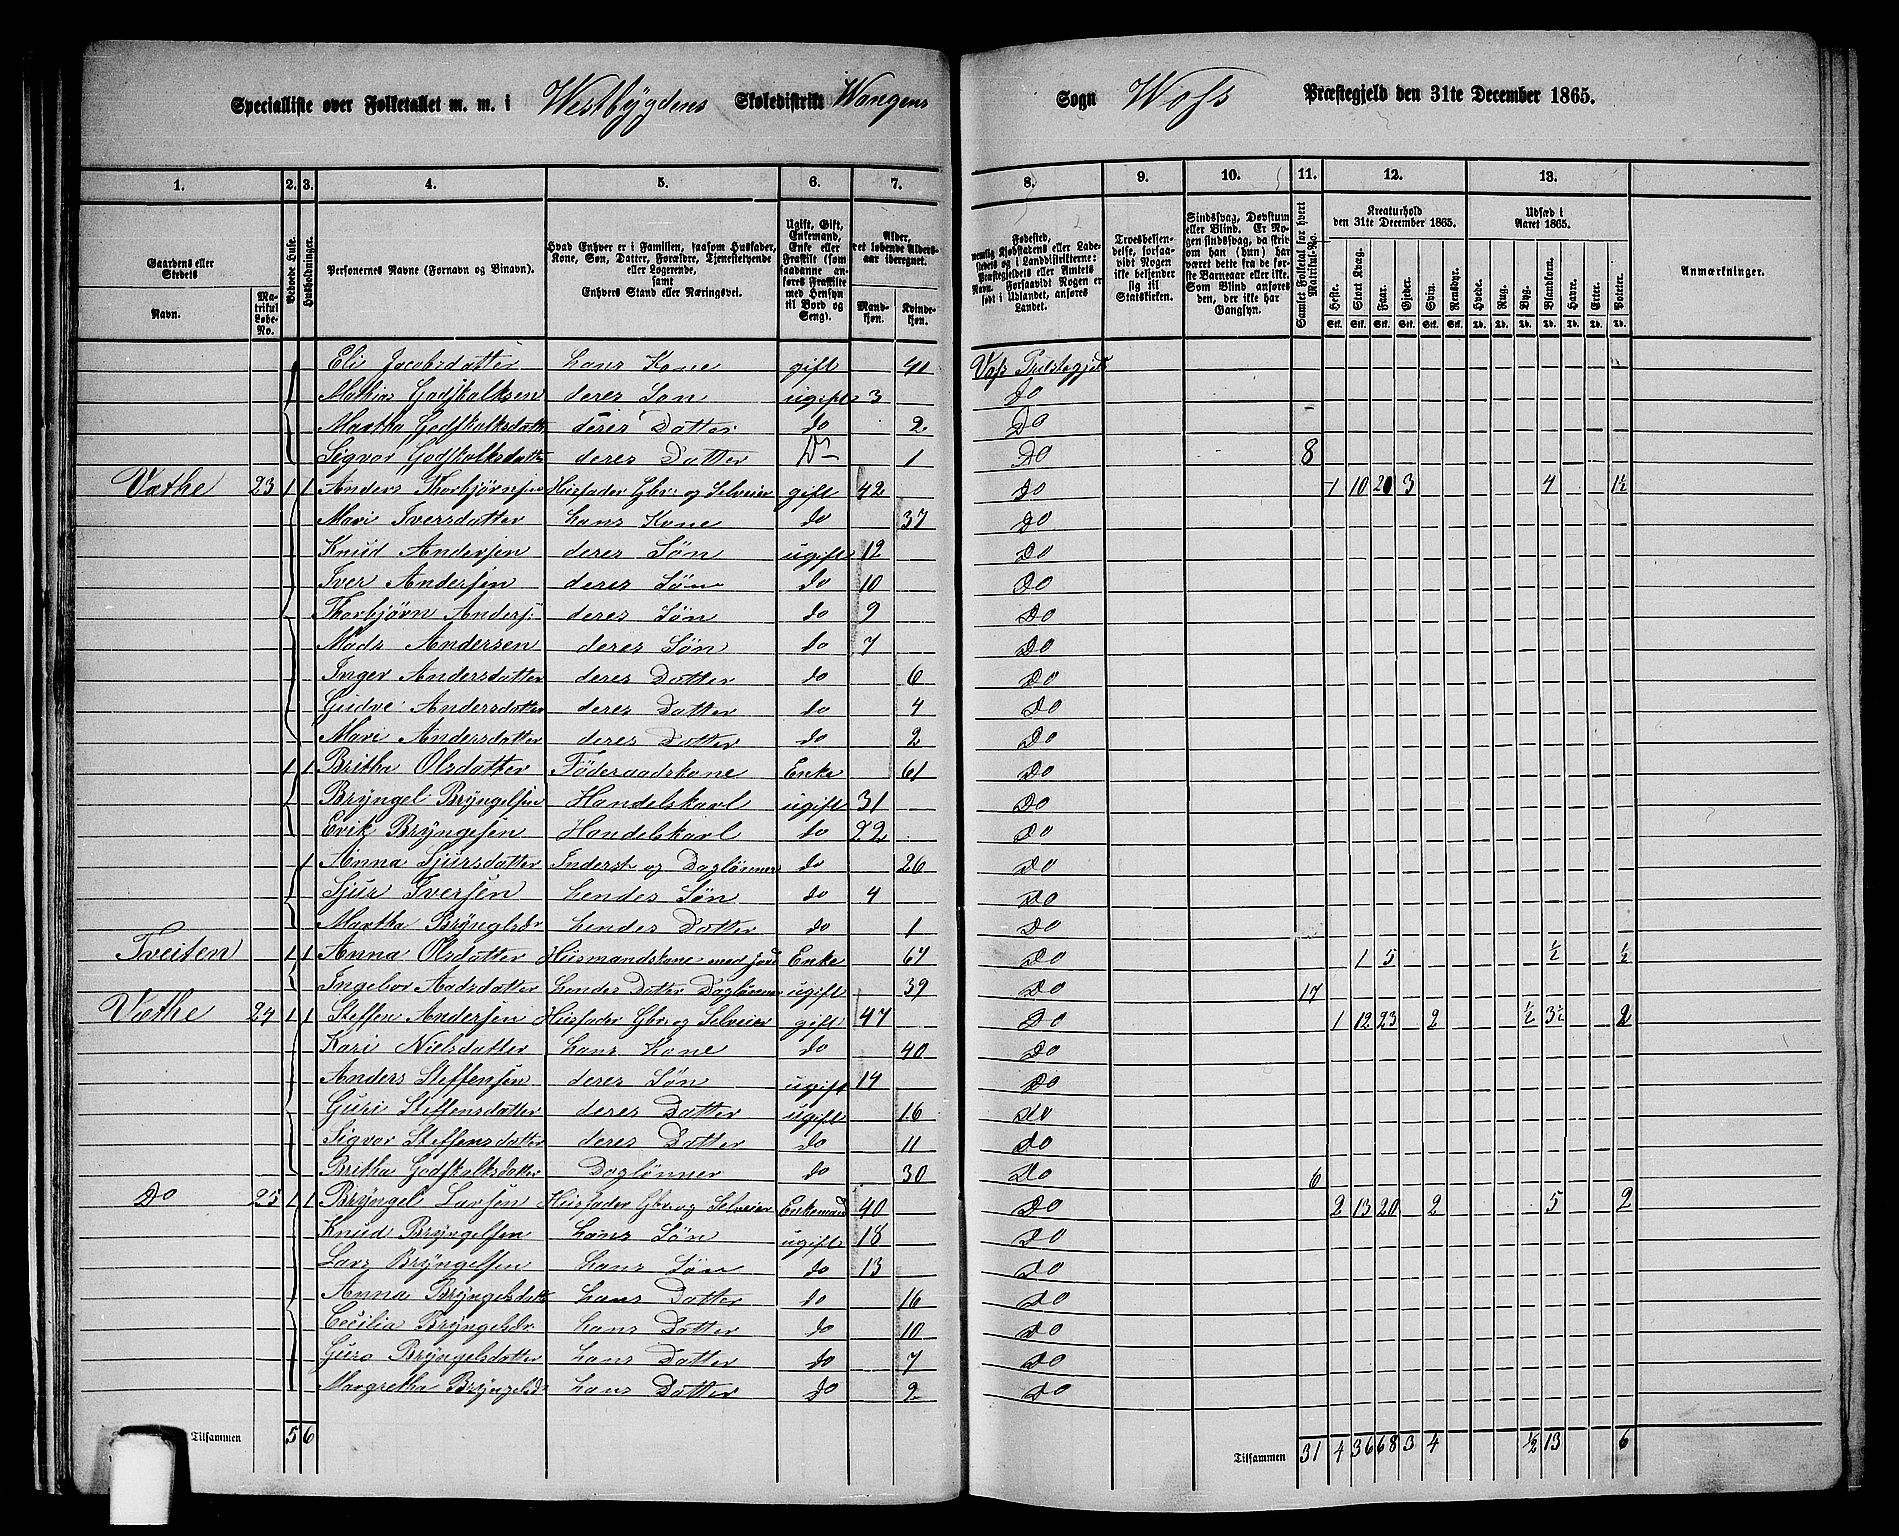 Specialliste over Folketallet m. m. i Westbygdens Skoledistrikt Wangens Sogn Woss Præstegjeld den 31te December 1865.
1. 2. 3. 4. 5. 6. 7. 8. 9. 10. 11. 12. 13.
Gaardens eller Stedets Navn. Matrikul Løbe-No.
Beboede Huse.
Husholdninger.
Personernes Navne (Fornavn og Binavn).
Hvad Enhver er i Familien, saasom Husfader, Kone, Søn, Datter, Forældre, Tjenestetyende eller Logerende, samt Enhvers Stand eller Næringsvei.
Ugift, Gift, Enkemand, Enke eller Fraskilt (som saadanne anføres Fraskilte med Hensyn til Bord og Seng).
Alder, det løbende Aldersaar iberegnet. Mandkjøn. Kvindekjøn.
Fødested, nemlig Kjøbstadens eller Ladestedets og i Landdistrikterne: Præstegjeldets eller Amtets Navn. Forsaavidt Nogen er født i Udlandet, anføres Landet.
Troesbekjendelse, forsaavidt Nogen ikke bekjender sig til Statskirken.
Sindssvag, Døvstum eller Blind. Er Nogen sindssvag, da skrives om han (hun) har været dette fra de første Barneaar eller ikke. Som Blind anføres den, der ikke har Gangsyn.
Samlet Folketal for hvert Matrikul-No.
Kreaturhold den 31te December 1865.
Heste. Stort Kvæg. Faar. Gjeder. Svin. Rensdyr.
Udsæd i Aaret 1865.
Hvede. Rug. Byg. Blandkorn. Havre. Erter. Poteter.
Anmærkninger.
Stk. Stk. Stk. Stk. Stk. Stk. Td. Td. Td. Td. Td. Td. Td.
Eli Jacobsdatter hans Kone gift 41 Voss Prestegjeld
Mathias Godskalksen deres Søn ugift 3 Do
Martha Godskalksdatt deres Datter do 2 Do
Sigvor Godskalksdatter deres Datter Do 1 Do 8
Væthe 23 1 1 Anders Thorbjørnsen Husfader Gbr: og Selveier gift 42 Do 1 10 20 3 4 1½
Mari Iversdatter hans Kone do 37 Do
Knud Andersen deres Søn ugift 12 Do
Iver Andersen deres Søn do 10 Do
Thorbjørn Anders: deres Søn do 9 Do
Mads Andersen deres Søn do 7 Do
Inger Andersdatter deres Datter do 6 Do
Gudve Andersdatter deres Datter do 4 Do
Mari Andersdatter deres Datter do 2 Do
1 1 Britha Olsdatter Föderaadskone Enke 61 Do
Bryngel Bryngelsen Handelskarl ugift 31 Do
Erik Bryngelsen Handelskarl do 22 Do
1 Anna Sjursdatter Inderst og Daglønner do 26 Do
Sjur Iversen hendes Søn do 4 Do
Martha Bryngelsdr hendes Datter do 1 Do
Tveiten 1 1 Anna Olsdatter Husmandskone med jord Enke 67 Do 1 5 ½ ½
Ingebor Aadsdatter hendes Datter Daglønner ugift 39 Do 17
Væthe 24 1 1 Steffen Andersen Husfader Gbr og Selveier gift 47 Do 1 12 23 2 ½ 3½ 2
Kari Nielsdatter hans Kone do 40 Do
Anders Steffensen deres Søn ugift 14 Do
Guri Steffensdatter deres Datter ugift 16 do
Sigvor Steffensdatter deres Datter do 11 do
Britha Godskalksdatter Daglønner do 30 Do 6
Do 25 1 1 Bryngel Larsen Husfader Gbr og Selveier Enkemand 40 Do 2 13 20 2 5 2
Knud Bryngelsen hans Søn ugift 18 Do
Lars Bryngelsen hans Søn do 13 Do
Anna Bryngelsdatt hans Datter do 16 Do
Cecilia Bryngelsdr hans Datter do 10 do
Guro Bryngelsdatter hans Datter do 7 do
Margretha Bryngelsd hans Datter do 2 Do
Tilsammen 5 6 Tilsammen 31 4 36 68 3 4 ½ 13 6